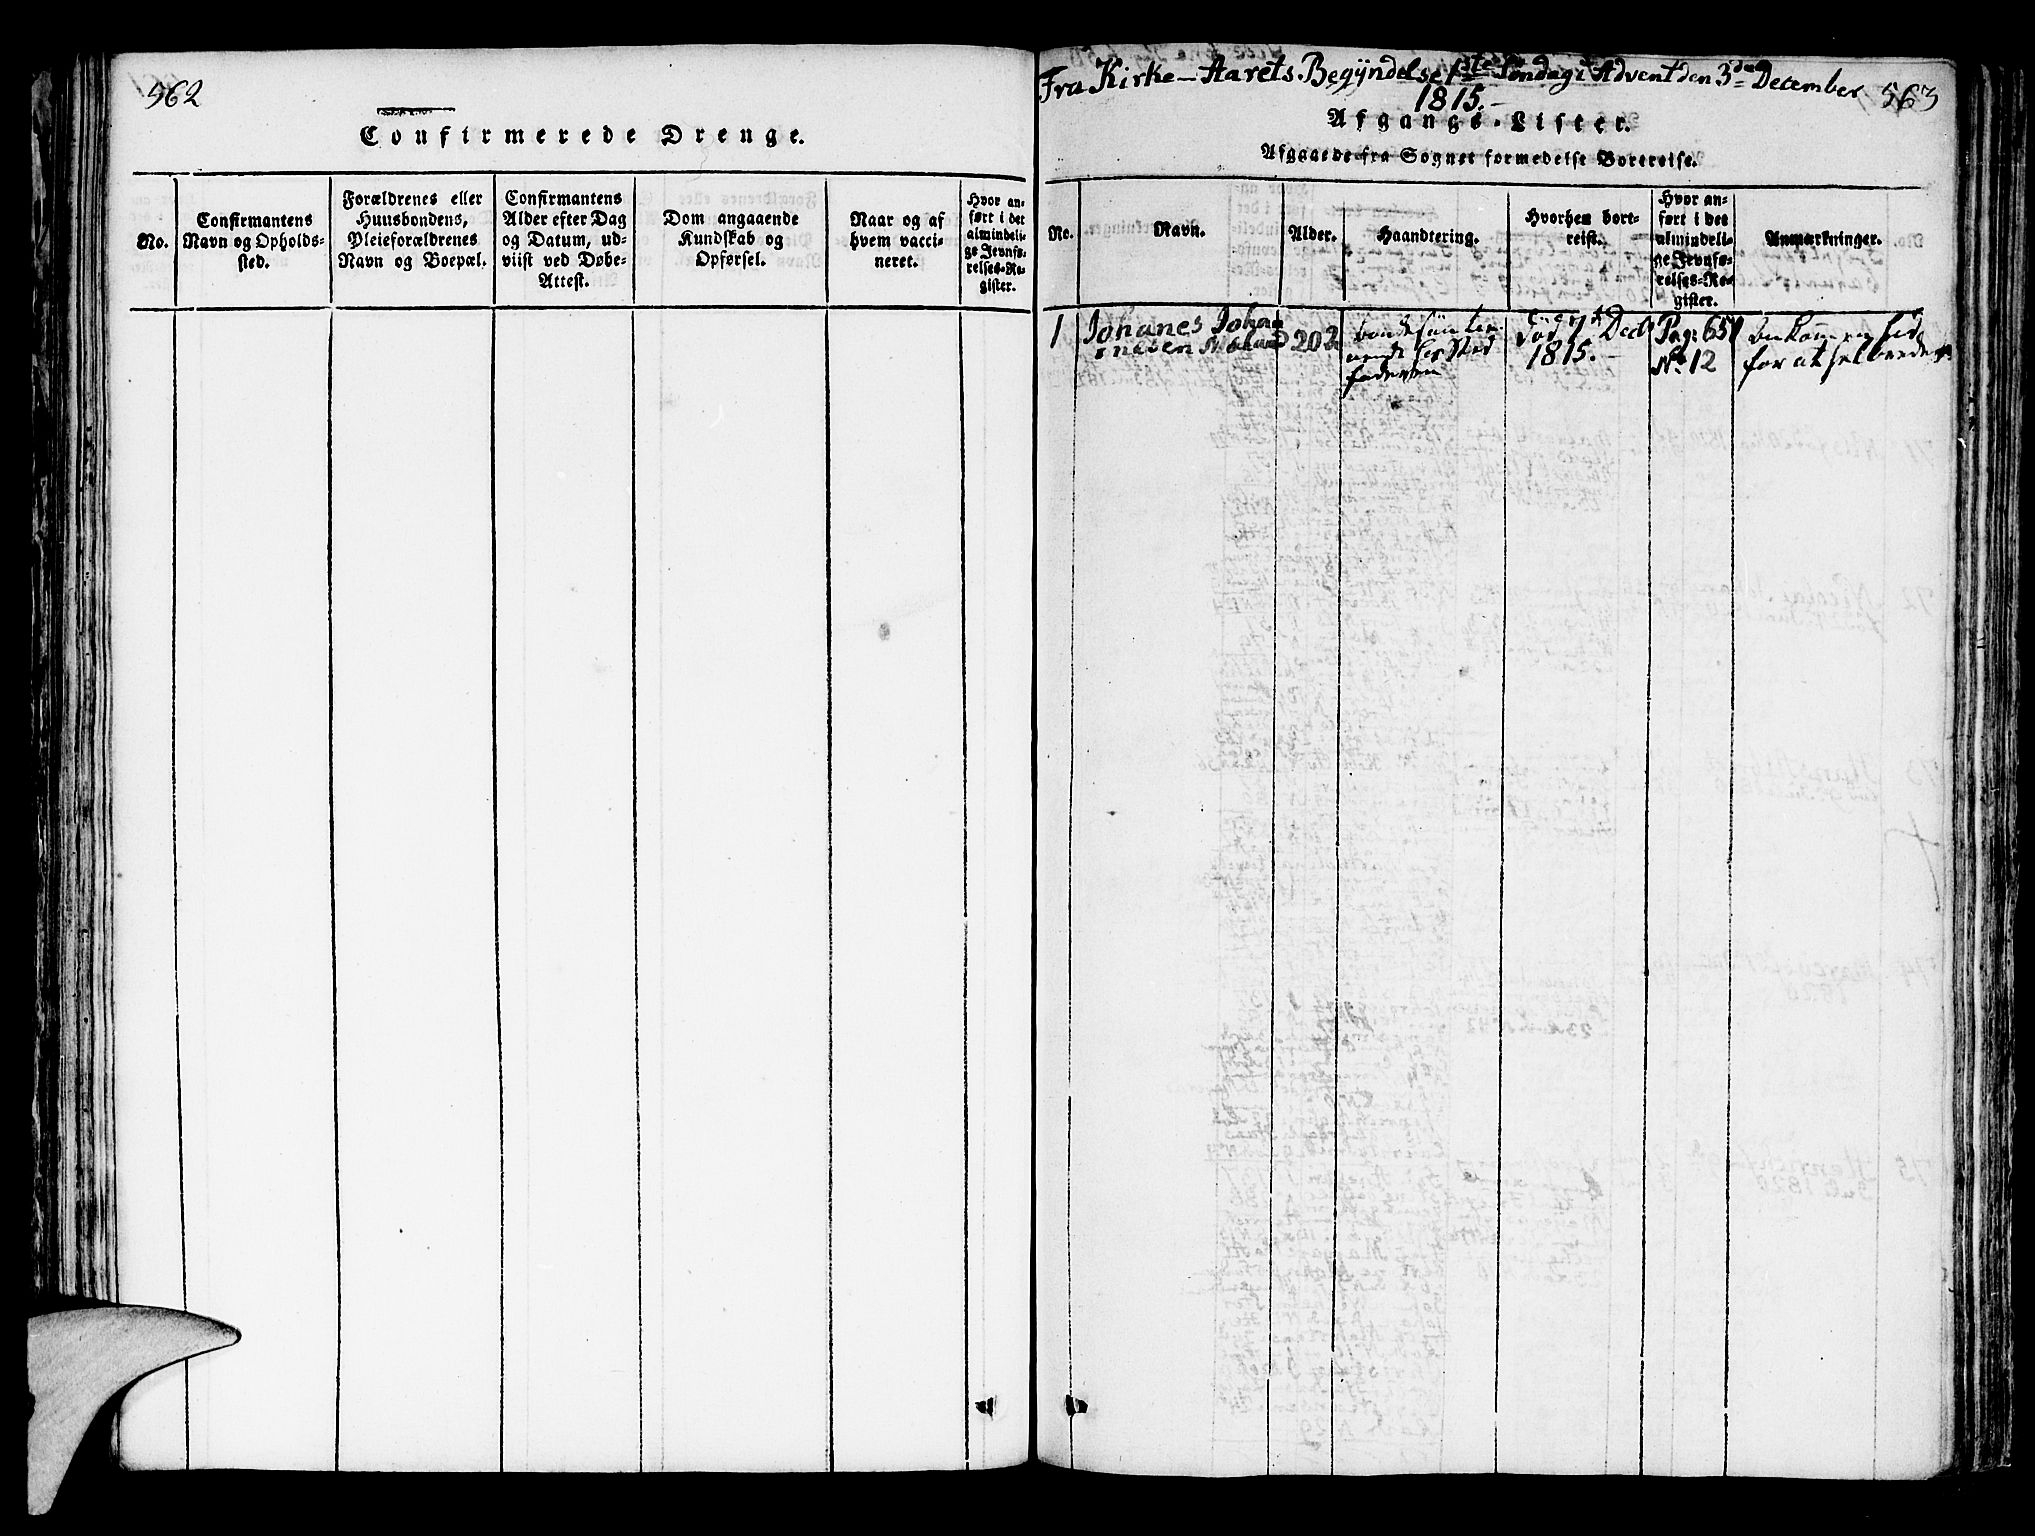 562
Confirmerede Drenge.
No.
Confirmantens
Navn og Opholds-
sted.
Forældrenes eller
Huusbondens,
Pleieforældrenes
Navn og Boepæl.
Confirmantens
Alder efter Dag
og Datum, ud-
viist ved Døbe-
Attest.
Dom angaaende
Kundskab og
Opførsel.
Naar og af
hvem vacci-
neret.
Hvor an-
ført i det
almindeli-
ge Jevnfø-
relses-Re-
gister.
Fra Kirke-Aarets Begyndelse 1ste Søndag i Advent den 3die December
1815.
563
Afgangs-Lister.
Afgaaede fra Sognet formedelst Bortreise.
No.
Navn.
Alder.
Haandtering.
Hvorhen bort-
reist.
Hvor an-
ført i det
almindeli-
ge Jevnfø-
relses-Re-
gister.
Anmærkninger.
1
Johanes Johan
nesen
20
faderen
7de Decb
1815.
Pag: 651
No 12
for at